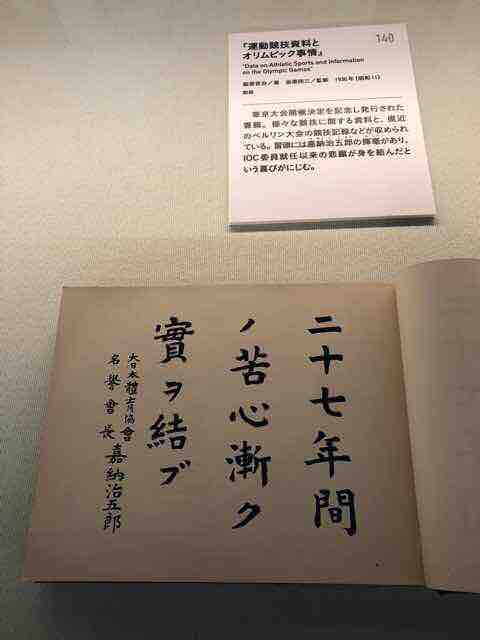 140
「運動競技資料と
オリムピック事情」
"Data on Athletic Sports and Information
on the Olympic Games"
1936年(昭和11)
東京大会開催決定を記念し発行された
書籍。様々な競技に関する資料と、直近
のベルリン大会の競技記録などが収められ
ている。冒頭には嘉納治五郎の揮毫があり、
IOC委員就任以来の悲願が身を結んだと
いう喜びがにじむ。
二十七年間
ノ苦心漸ク
實ヲ結ブ
大日本體育協會
名誉會長 嘉納治五郎